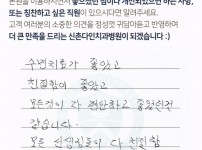 본원을 이용하시면서 좋았던 점이나 개선되었으면 하는 사항,
또는 칭찬하고 싶은 직원이 있으시다면 알려주세요.
고객 여러분의 소중한 의견을 정성껏 귀담아듣고 반영하여
더 큰 만족을 드리는 신촌다인치과병원이 되겠습니다 :)
수면치료가 좋았고
친절함이 좋았고
모든것이 다 편안하고 좋았던것
같습니다.
모든 선생님들이 다 친절함